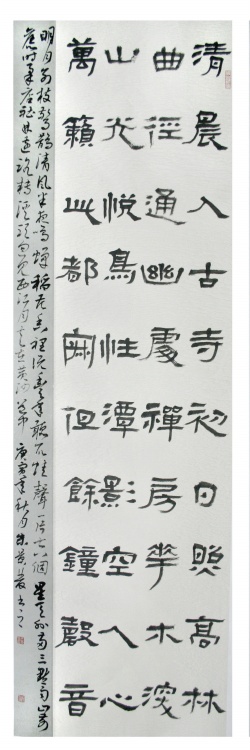 清晨入古寺初日照高林
曲徑通幽處禪房華木深
山光悅鳥性潭影空人心
萬籟此都寂但餘鐘磬音
明月別枝驚鵲清風半夜鳴蟬稻花香裡說豐年聽取蛙聲一片七八個星天外兩三點雨山前
舊時茅店社林邊路轉溪頭忽見西江月夜行黃沙道中庚寅年秋月